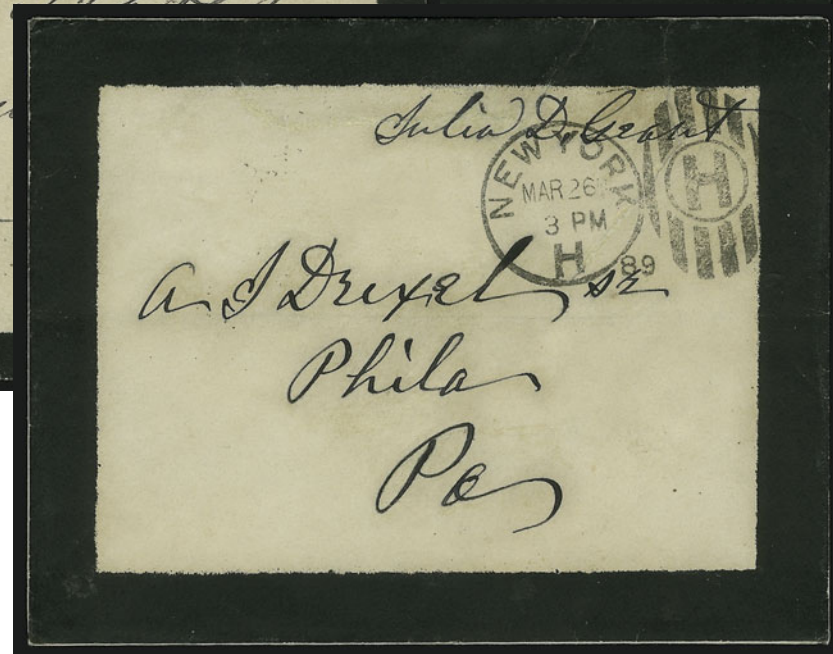 Julia D. Grant
NEW YORK
MAR 26
3 PM
H
89
H
A J Drexel sr
Phila
Pa